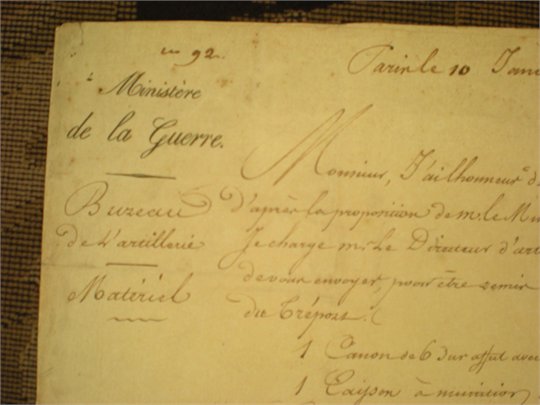 92
Paris le 10 Janv
Ministère
de la Guerre.
Monsieur, J'ai l'honneur d
Bureau
de L'artillerie
Matériel
d'après la proposition de mr. le Mi
Je charge mr. Le Directeur d'art
de vous envoyer, pour être remir
du Tréport.
1 Canon de 6 sur affut avec
1 Caisson à munition